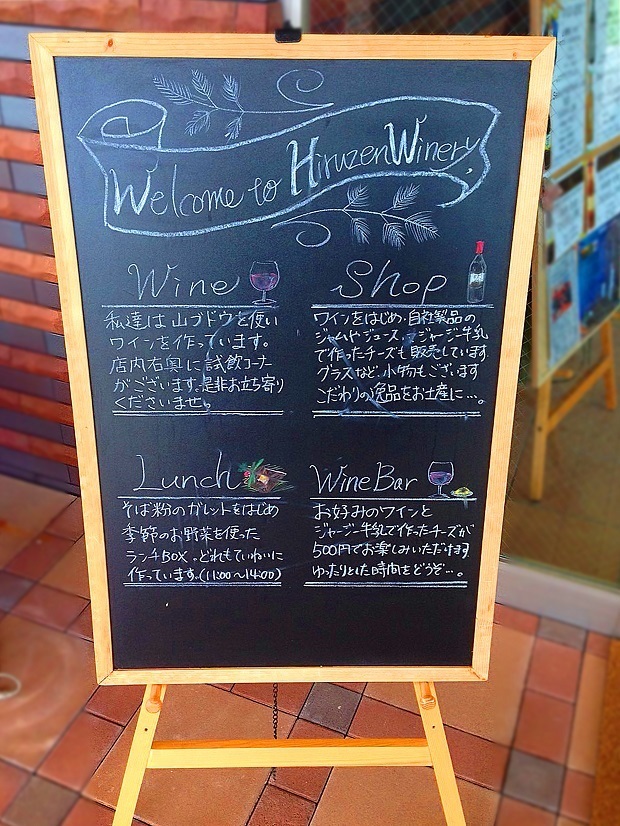 Welcome to HiruzenWinery
Wine
私達は山ブドウを使い
ワインを作っています。
店内右奥に試飲コーナー
がございます。是非お立ち寄り
くださいませ。
Shop
ワインをはじめ、自社製品の
ジャムやジュース、ジャージー牛乳
で作ったチーズも販売しています
グラスなど、小物もございます
こだわりの逸品をお土産に…。
Lunch
そば粉のガレットをはじめ
季節のお野菜を使った
ランチBOX。どれもていねいに
作っています。(11:00〜14:00)
WineBar
お好みのワインと
ジャージー牛乳で作ったチーズが
500円でお楽しみいただけます
ゆったりとした時間をどうぞ…。